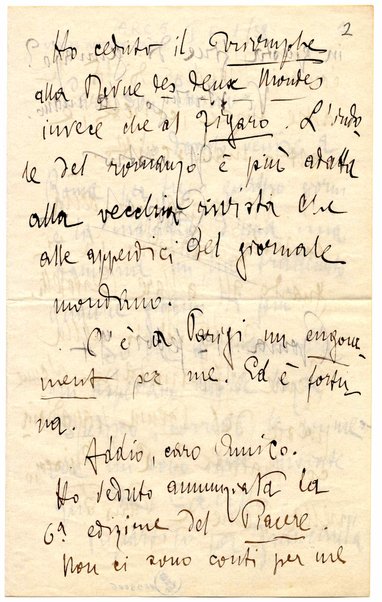 2
Ho ceduto il Triomphe
alla Revue des deux Mondes
invece che al Figaro. L'indo-
le del romanzo è più adatta
alla vecchia rivista che
alle appendici del giornale
mondano.
C'è a Parigi un engoue-
ment per me. Ed è fortu-
na.
Addio, caro amico.
Ho veduto annunziata la
6ª edizione del Piacere.
Non ci sono conti per me